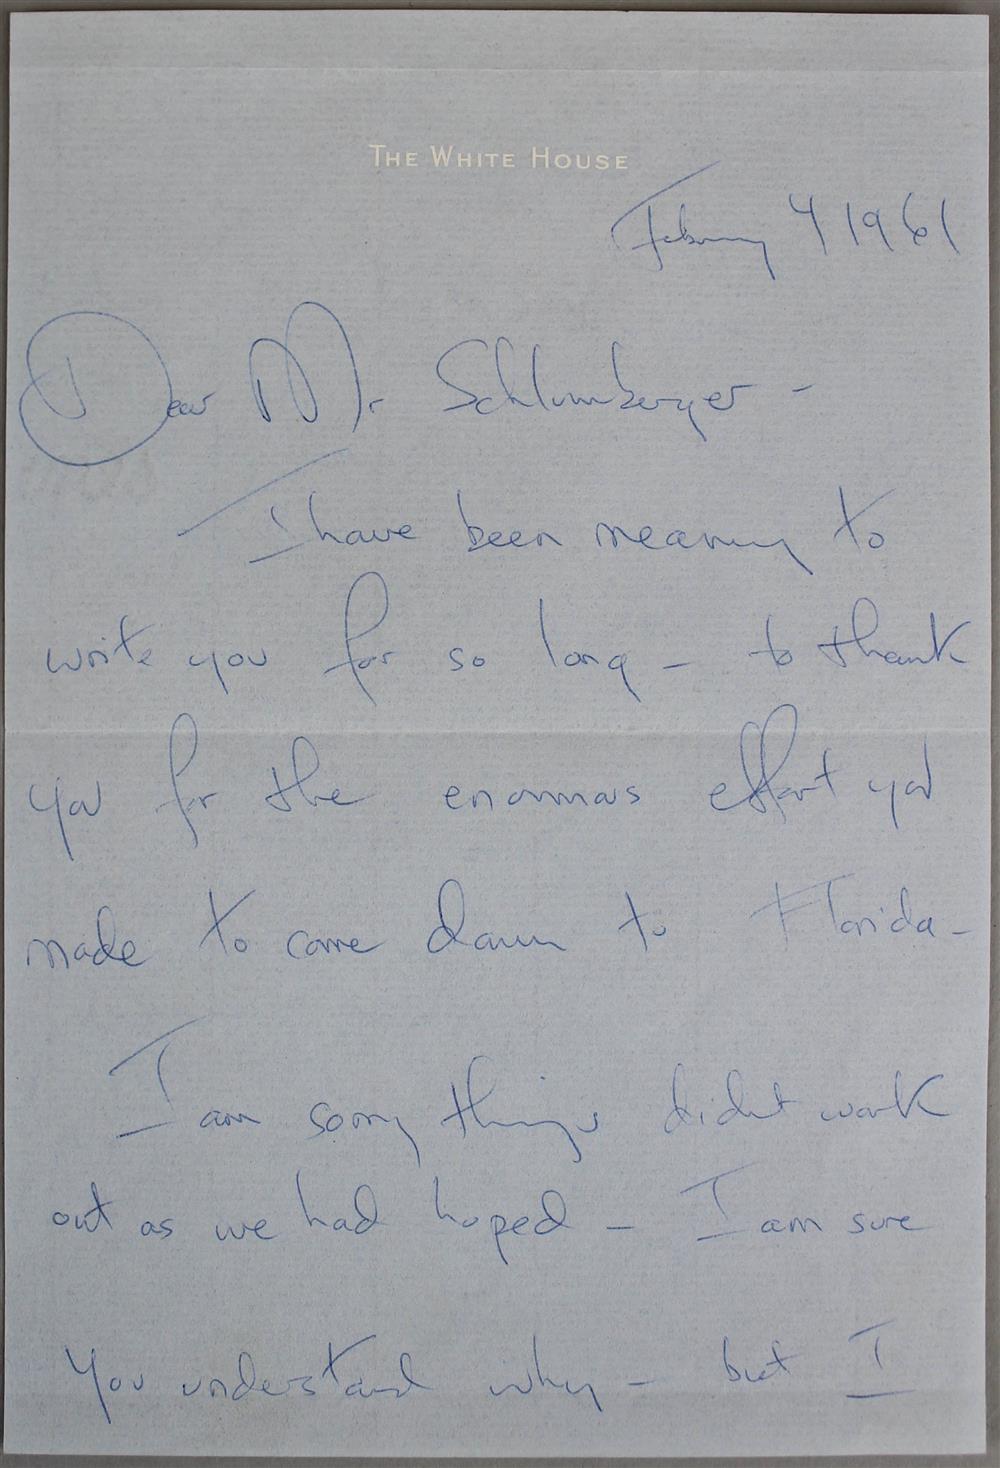 THE WHITE HOUSE
February 4 1961
Dear Mr Schlumberger -
I have been meaning to
write you for so long - to thank
you for the enormous effort you
made to come down to Florida -
I am sorry things didnt work
out as we had hoped - I am sure
you understand why - but I